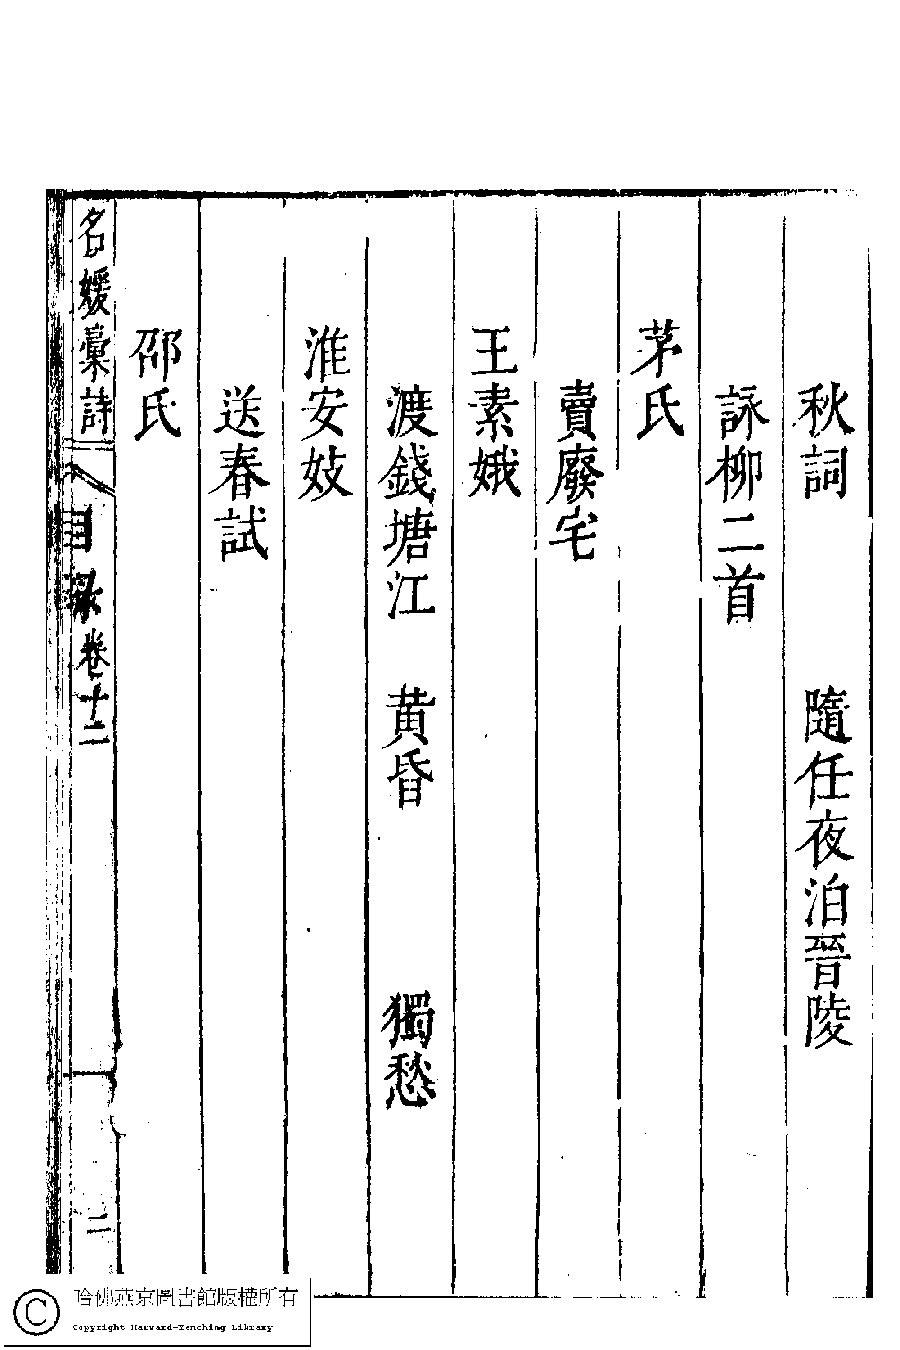 秋詞　隨任夜泊晉陵
詠柳二首
茅氏
賣廢宅
王素娥
渡錢塘江　黃昏　獨愁
淮安妓
送春試
邵氏
名媛彙詩　目錄卷十二　二
哈佛燕京圖書館版權所有
Copyright Harvard-Yenching Library